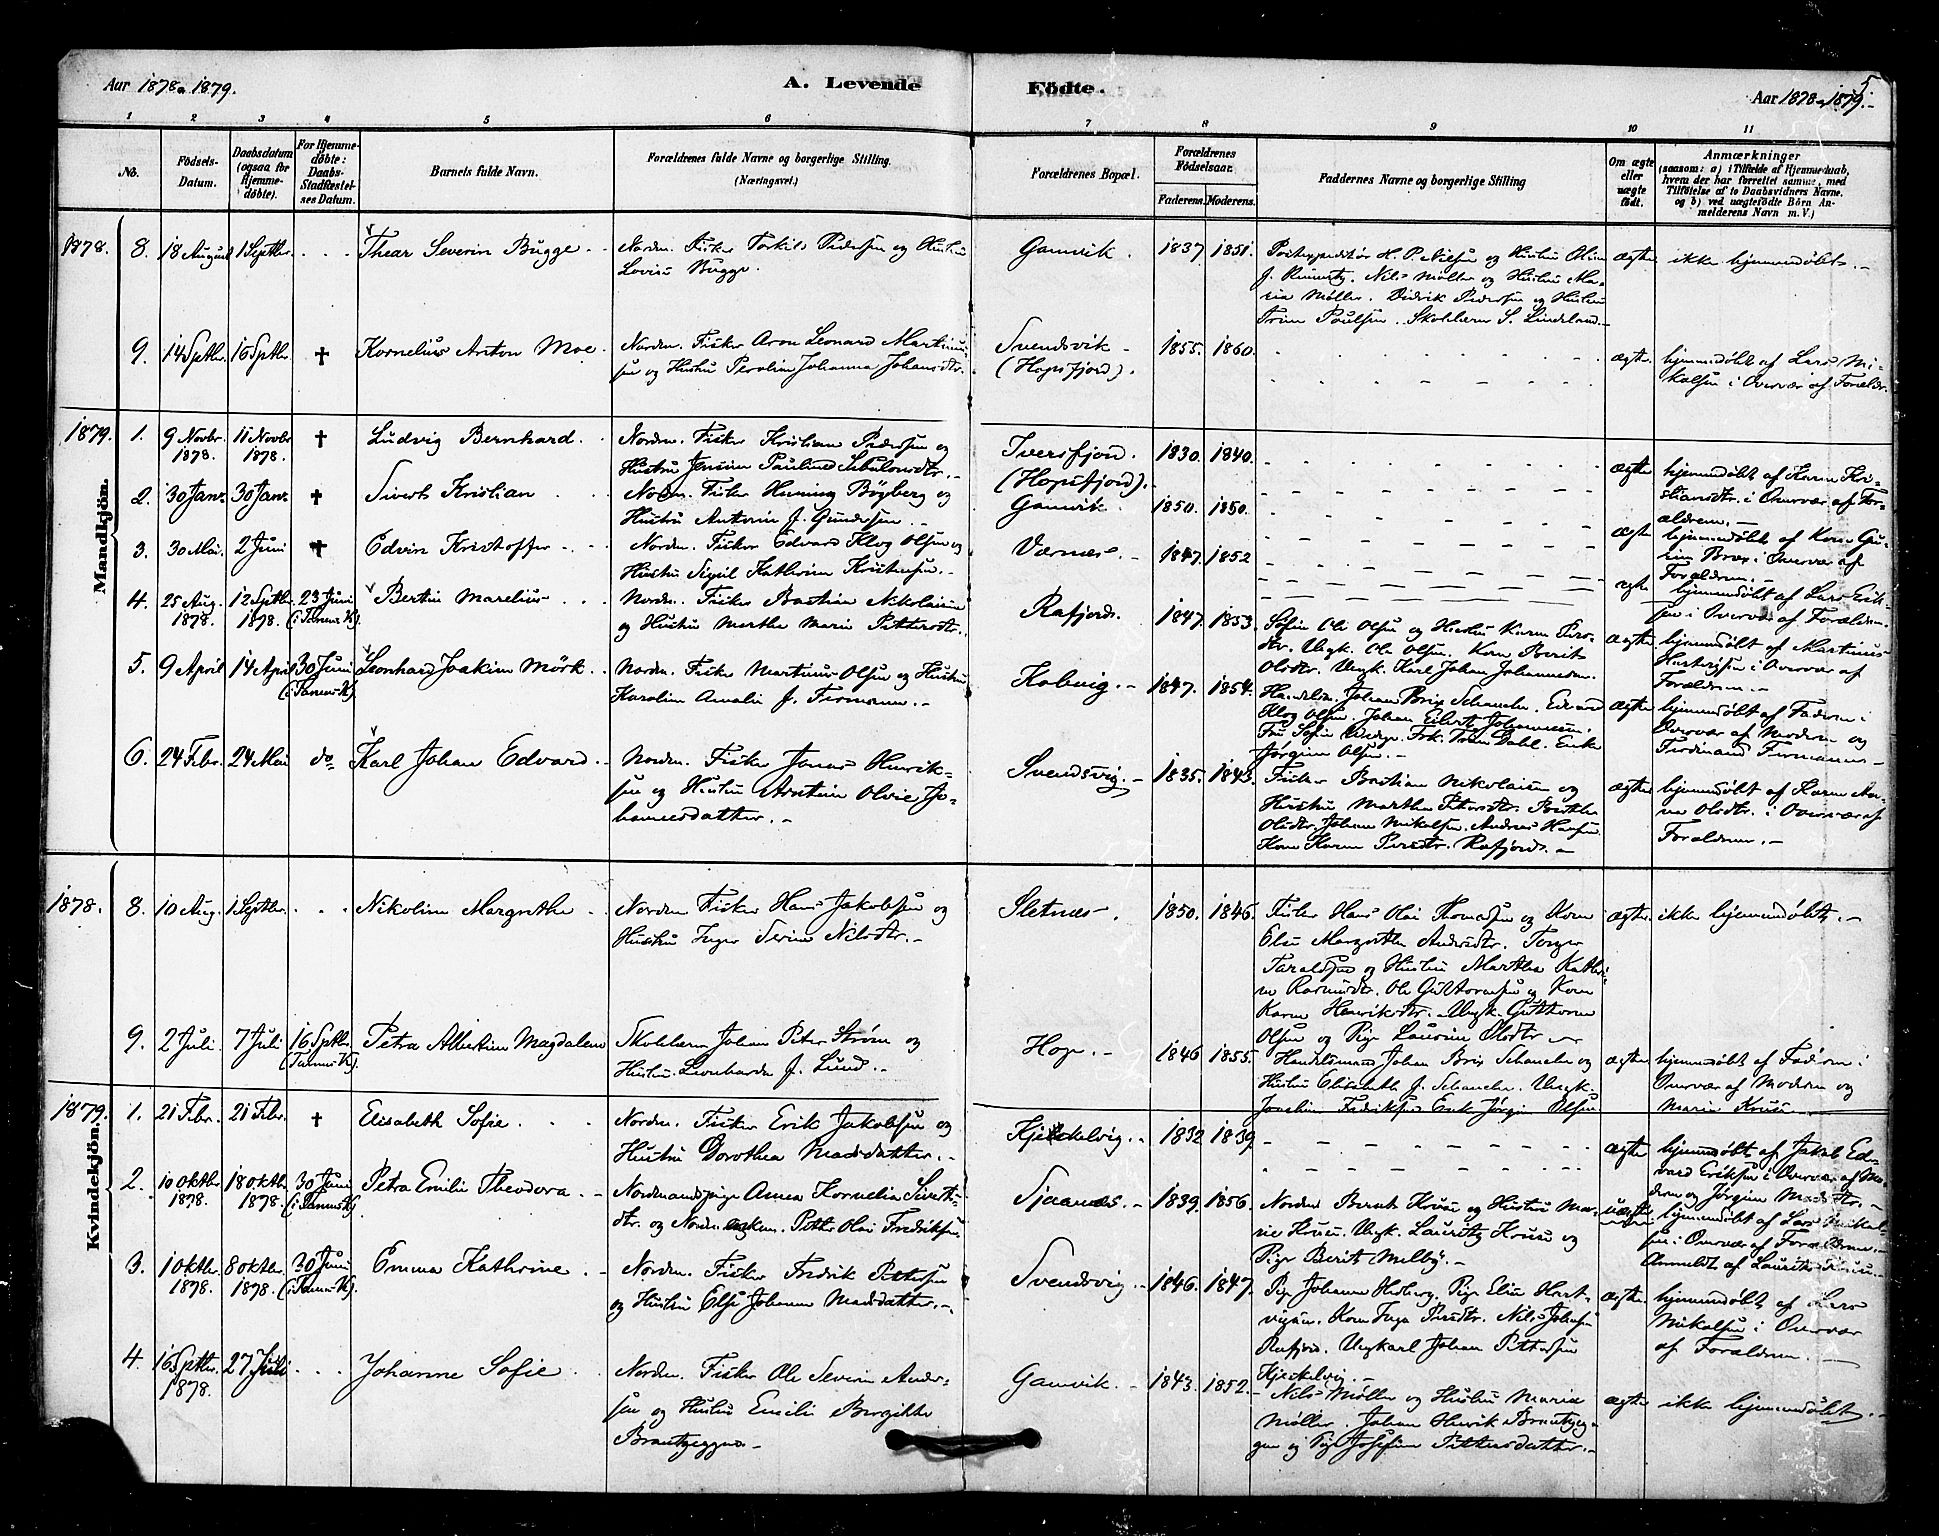 Aar 1878 & 1879.
A. Levende
Födte.
5.
Aar 1878 & 1879.
1 2 3 4 5 6 7 8 9 10 11
No.
Födsels-
Datum.
Daabsdatum
(ogsaa for
Hjemme-
døbte).
For Hjemme-
døbte:
Daabs-
Stadfæstel-
ses Datum.
Barnets fulde Navn.
Forældrenes fulde Navne og borgerlige Stilling.
(Næringsvei.)
Forældrenes Bopæl.
Forældrenes
Fødselsaar.
Faderens. Moderens.
Faddernes Navne og borgerlige Stilling
Om ægte
eller
uægte
født.
Anmærkninger
(saasom: a) i Tilfælde af Hjemmedaab,
hvem der har forrettet samme, med
Tilføielse af to Daabsvidners Navne.
og b) ved uægtefødte Børn An-
melderens Navn m. V.)
Mandkjön.
1878. 8. 18 August 1 Septbr. Thear Severin Bugge
Nordm. Fisker Torkils Pedersen og Hustru
Lovise Bugge.
Gamvik. 1837 1851.
H. P. Nilsen og Hustru
Nils Møller og Hustru Ma-
ria Møller. Didrik Pedersen og Hustru
Trine Paulsen. S. Lindeland.
ægte ikke hjemmedøbt.
9. 14 Septbr. 16 Septbr. † Kornelius Anton Moe.
Nordm. Fisker Aron Leonard Martinus-
sen og Hustru Johanna Johansdtr.
Svendsvik
(Hopsfjord).
1855. 1860.
ægte. hjemmedøbt af Lars Mi-
kalsen i Overvær af Forældr.
1879. 1. 9 Novbr. 1878. 11 Novbr 1878. † Ludvig Bernhard.
Nordm. Fisker Kristian Pedersen og
Hustru Jensine Pauline
Iversfjord.
(Hopsfjord).
1830. 1840.
ægte hjemmedøbt af Karen Kri-
stiansdtr. i Overvær af For-
ældrene.
2. 30 Janr. 30 Janr. † Sivert Kristian
Nordm. Fisker Henning Bøgberg og
Hustru Antonie J. Gundersen.
Gamvik. 1850. 1850.
ægte hjemmedøbt af Kone Gu-
i Overvær af
Forældrene.
3. 30 Mai. 2 Juni † Edvin Kristoffer
Nordm. Fisker Edvard Klog Olsen og
Hustru Sigril Kathrine Kristensen.
Værnæs. 1847. 1852
ægte hjemmedøbt af Lars Erik-
sen i Overvær af Forældrene.
4. 25 Aug. 1878. 12 Septbr. 1878. 23 Juni (i Tanens K). Bertin Marelius
Nordm. Fisker Bastian Nikolaisen
og Hustru Marthe Marie Pettersdtr.
Rafjord. 1847. 1853.
Ole Olsen og Hustru Karen Peders-
dtr. Ungk. Ole Olsen. Kone Berit
Olsdtr. Ungk. Karl Johan Johannesen.
ægte hjemmedøbt af Martinus
i Overvær af
Forældrene.
5. 9 April 14 April 30 Juni (i Tanens K). Leonhard Joakim Mörk.
Nordm. Fisker Martinus Olsen og Hustru
Karoline Amalie J. Fermann.
Kobvig. 1847. 1854.
Handelsm. Johan Brix Schanche. Edvard
Klog Olsen. Johan Eilert Johannesen.
Fru Sofie Frk. Trine Dahl. Enke
Jørgine Olsen.
ægte hjemmedøbt af Faderen i
Overvær af Moderen og
Ferdinand Fermann.
6. 24 Febr. 24 Mai do Karl Johan Edvard.
Nordm. Fisker Jonas Henrik-
sen og Hustru Olvie Jo-
hannesdatter.
Svendsvig. 1835. 1843.
Fisker Bastian Nikolaisen og
Hustru Marthe Petersdtr.
Olsdtr. Johan Mikalsen. Andreas Hansen
Kone Karen Pedersdtr. Rafjord.
ægte hjemmedøbt af Karen An-
na Olsdtr. i Overvær af
Forældrene.
Kvindekjön.
1878. 8. 10 Aug. 1 Septbr. Nikoline Margrethe
Nordm. Fisker Hans Jakobsen og
Hustru Inger Serine Nilsdtr.
Sletnæs. 1850. 1846.
Fisker Hans Olai Thomassen og Kone
Else Margrethe Andersdtr. Torger
Taraldsen og Hustru Marthea Kathri-
ne Rasmusdtr. Ole Guttormsen og Kone
Karen Henriksdtr. Ungk. Guttorm
Olsen og Pige Laurine Olsdtr
ægte. ikke hjemmedøbt.
9. 2 Juli. 7 Juli 16 Septbr. (Tanens K). Petra Albertine Magdalene
Skolelærer Johan Peter Strøm og
Hustru Leonharda J. Lund.
Hop. 1846 1855.
Handelsmand Johan Brix Schanche og
Hustru Elisabeth J. Schanche. Ungk.
Joachim Fredriksen Enke Jørgine Olsen
ægte hjemmedøbt af Faderen i
Overvær af Moderen og
Marie Kruse.
1879. 1. 21 Febr. 21 Febr. † Elisabeth Sofie.
Nordm. Fisker Erik Jakobsen og
Hustru Dorothea Madsdatter.
Kjeckelvig. 1832 1839
ægte hjemmedøbt af Jakob Ed-
vard Eriksen i Overvær af Mo-
deren og Jørgine Madsdtr.
2. 10 Oktbr. 1878. 18 Oktbr. 1878. 30 Juni (i Tanens K). Petra Emilie Theodora.
Nordmandspige Anna Kornelia Siverts-
dtr. og Nordm. Petter Olai Fredriksen
Sjaanæs. 1839. 1856.
Nordm. Bernt Kruse og Hustru Ma-
rie Kruse. Ungk. Lauritz Kruse og
Pige Berit Melby.
uægte hjemmedøbt af Lars Mikkel-
sen i Overvær af Forældrene.
Anmeldt af Lauritz Kruse.
3. 1 Oktbr. 1878. 8 Oktbr. 1878. 30 Juni (i Tanens K). Emma Kathrine.
Nordm. Fisker Fredrik Pettersen
og Hustru Else Johanne Madsdatter.
Svendsvig 1846. 1847.
Pige Johanne Hedberg. Pige Elise Hart-
vigsen. Kone Inga Pedersdtr. Nils Johnsen
Rafjord. Ungkarl Johan Pettersen
Kjeckelvig.
ægte. hjemmedøbt af Lars
Mikalsen i Overvær
af Forældrene.
4. 16 Septbr. 1878. 27 Juli Johanne Sofie
Nordm. Fisker Ole Severin Ander-
sen og Hustru Emilie Birgitte
Gamvik. 1843. 1852.
Nils Møller og Hustru Maria
Møller. Johan Henrik
og Pige Josefine Pettersdatter.
ægte ikke hjemmedøbt.